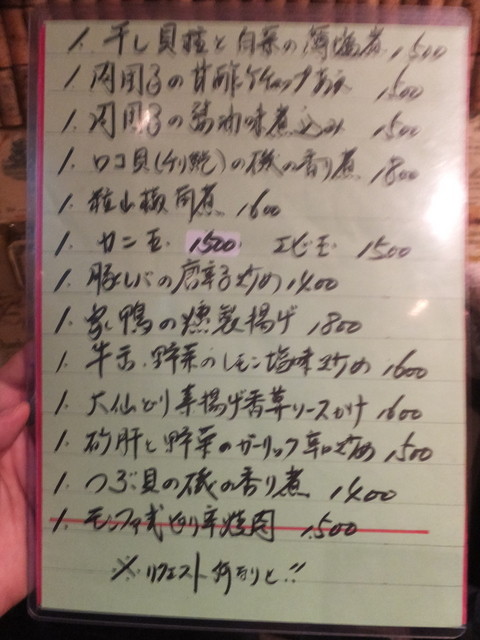 1. 干し貝柱と白菜の薄塩煮 1,500
1. 肉団子の甘酢ケチャップあん 1,500
1. 肉団子の醤油味煮込み 1,500
1. ロコ貝(チリ鮑)の磯の香り煮 1,800
1. 粒山椒肉煮 1,600
1. カニ玉 1,500 エビ玉 1,500
1. 豚レバの唐辛子炒め 1,400
1. 家鴨の燻製揚げ 1,800
1. 牛舌、野菜のレモン塩味炒め 1,600
1. 大山どり素揚げ香草ソースがけ 1,600
1. 砂肝と野菜のガーリック辛口炒め 1,500
1. つぶ貝の磯の香り煮 1,400
1. 辛焼肉 1,500
※リクエスト